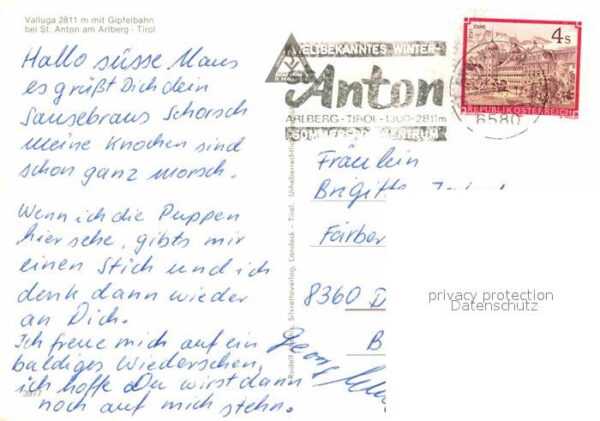 Valluga 2811 m mit Gipfelbahn
bei St. Anton am Arlberg - Tirol
Hallo süsse Maus
es grüßt Dich dein
Sausebraus Schorsch
Meine Knochen sind
schon ganz morsch.
Wenn ich die Puppen
hier sehe, gibts mir
einen Stich und ich
denk dann wieder
an Dich.
Ich freue mich auf ein
baldiges Wiedersehen,
ich hoffe Du wirst dann
noch auf mich stehn.
Georg
3977
Rudolf Silvrettaverlag, Landeck - Tirol. Urheberrechtlich
WELTBEKANNTES WINTER-
Anton
ARLBERG-TIROL-1300-2811m
SOMMERSPORTZENTRUM
6580
4s
STIFT STAMS
REPUBLIK ÖSTERREICH
Fräulein
Färber
8360 D
B
privacy protection
Datenschutz